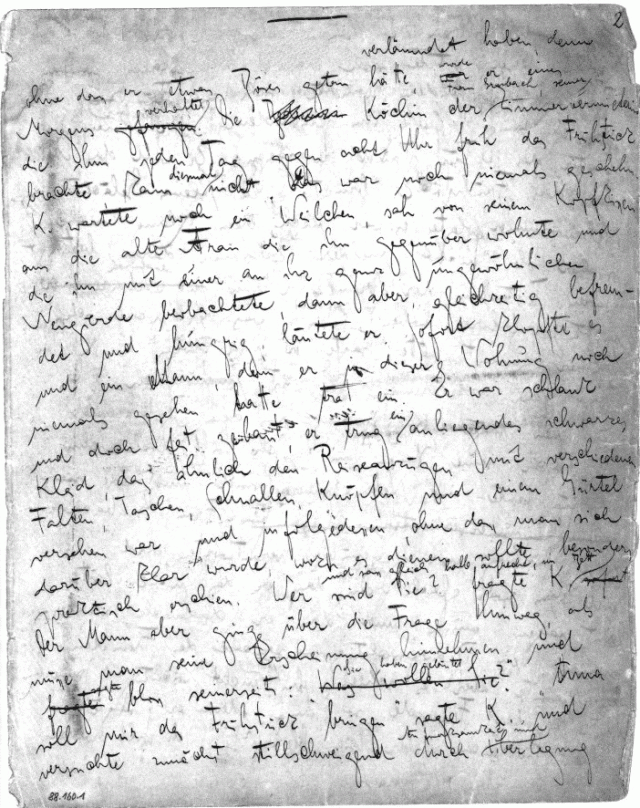 2
verläumdet haben, denn
ohne dass er etwas Böses getan hätte, wurde er eines
Morgens verhaftet. Die Köchin der Zimmervermieterin Frau Grubach seiner
die ihm jeden Tag gegen acht Uhr früh das Frühstück
brachte kam diesmal nicht. Das war noch niemals geschehn
K. wartete noch ein Weilchen, sah von seinem Kopfkissen
aus die alte Frau die ihm gegenüber wohnte und
die ihn mit einer an ihr ganz ungewöhnlichen
Neugierde beobachtete, dann aber, gleichzeitig befrem-
det und hungrig, läutete er. Sofort klopfte es
und ein Mann, den er in dieser Wohnung noch
niemals gesehen hatte trat ein. Er war schlank
und doch fest gebaut, er trug ein anliegendes schwarzes
Kleid, das ähnlich den Reiseanzügen mit verschiedenen
Falten, Taschen, Schnallen, Knöpfen und einem Gürtel
versehen war und infolgedessen, ohne dass man sich
darüber klar wurde, wozu es dienen sollte, besonders
praktisch erschien. Wer sind Sie? fragte K. und sass gleich halb aufrecht im Bett
Der Mann aber ging über die Frage hinweg, als
müsse man seine Erscheinung hinnehmen und
sagte bloss seinerseits: "Sie haben geläutet?" "Anna
soll mir das Frühstück bringen" sagte K. und
versuchte zunächst stillschweigend durch Überlegung
88.160.1